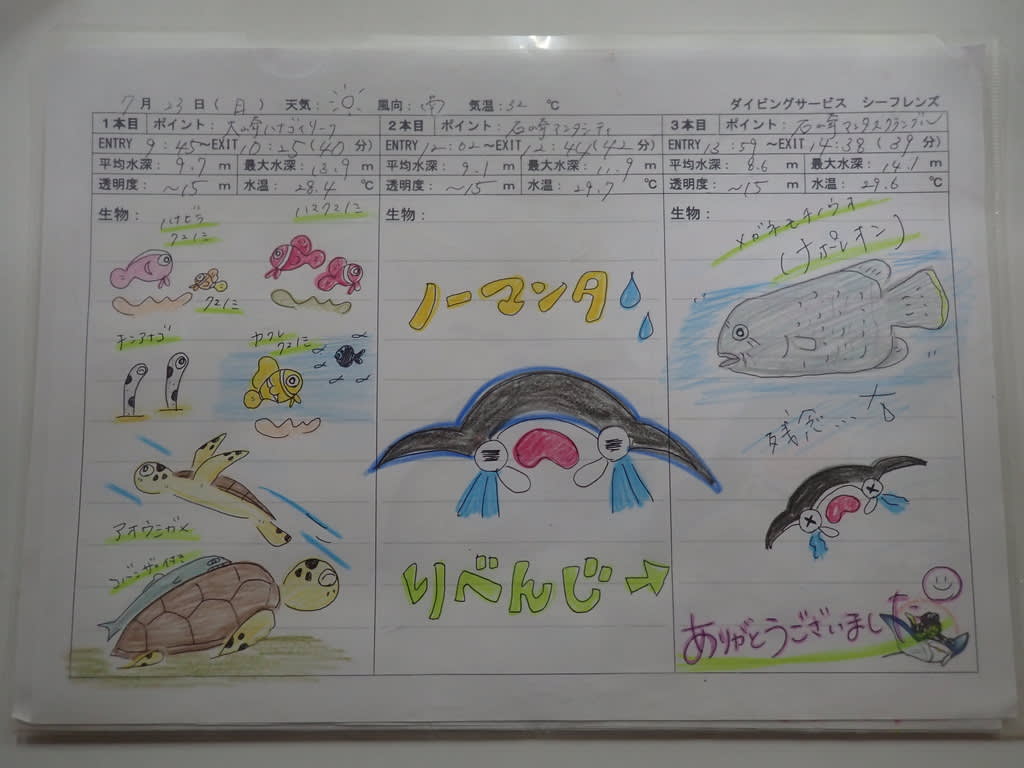 7月23日(月) 天気: 風向:南 気温:32 ℃ ダイビングサービス シーフレンズ
1本目 ポイント:大崎ハナゴイリーフ
ENTRY 9:45～EXIT 10:25(40分)
平均水深: 9.7 m 最大水深: 13.9 m
透明度: ～15 m 水温: 28.4 ℃
生物:
ハナビラ
クマノミ
ハマクマノミ
クマノミ
チンアナゴ
カクレ
クマノミ
アオウミガメ
コバンザメ付き
2本目 ポイント:石崎マンタシティ
ENTRY 12:02～EXIT 12:44(42分)
平均水深: 9.1 m 最大水深: 11.9 m
透明度: ～15 m 水温: 29.7 ℃
生物:
ノーマンタ
りべんじ→
3本目 ポイント:石崎マンタスクランブル
ENTRY 13:59～EXIT 14:38(39分)
平均水深: 8.6 m 最大水深: 14.1 m
透明度: ～15 m 水温: 29.6 ℃
生物:
メガネモチノウオ
(ナポレオン)
残念……
ありがとうございました